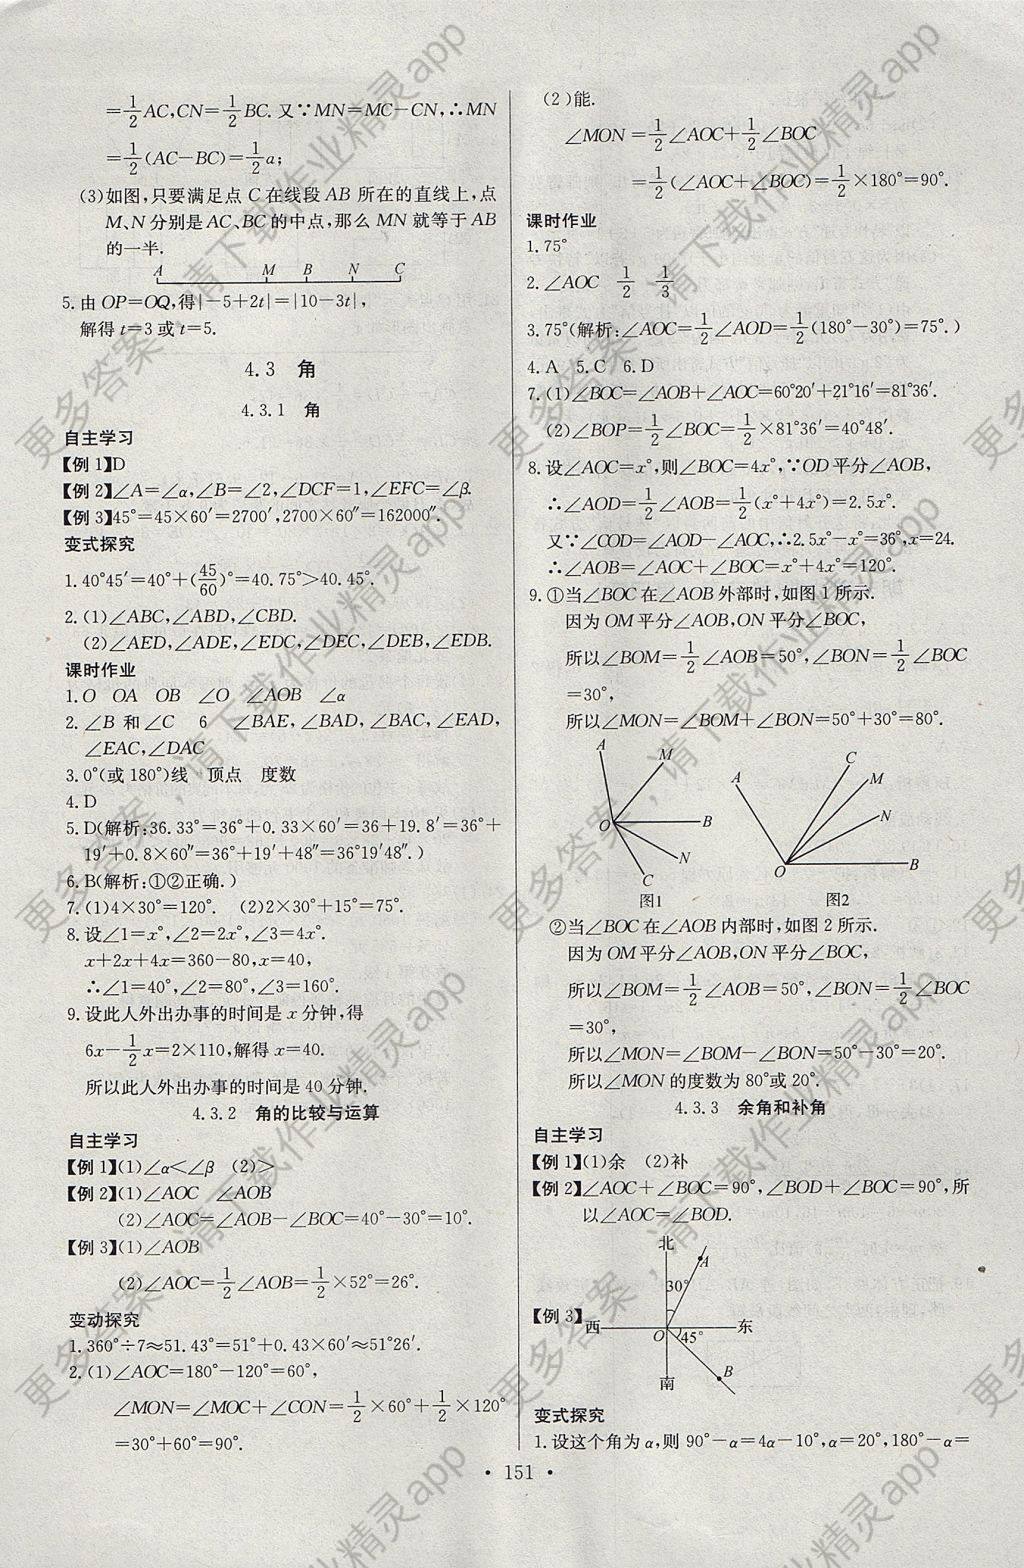 =1/2AC,CN=1/2BC.又∵MN=MC-CN,∴MN
=1/2(AC-BC)=1/2a;
(3)如图,只要满足点C在线段AB所在的直线上,点
M、N分别是AC、BC的中点,那么MN就等于AB
的一半.
A M B N C
5.由OP=OQ,得|-5+2t|=|10-3t|,
解得t=3或t=5.
4.3 角
4.3.1 角
自主学习
【例1】D
【例2】∠A=∠α,∠B=∠2,∠DCF=1,∠EFC=∠β.
【例3】45°=45×60′=2700′,2700×60″=162000″.
变式探究
1.40°45′=40°+(45/60)°=40.75°>40.45°.
2.(1)∠ABC,∠ABD,∠CBD.
(2)∠AED,∠ADE,∠EDC,∠DEC,∠DEB,∠EDB.
课时作业
1.O OA OB ∠O ∠AOB ∠α
2.∠B和∠C 6 ∠BAE,∠BAD,∠BAC,∠EAD,
∠EAC,∠DAC
3.0°(或180°)线 顶点 度数
4.D
5.D(解析:36.33°=36°+0.33×60′=36+19.8′=36°+
19′+0.8×60″=36°+19′+48″=36°19′48″.)
6.B(解析:①②正确.)
7.(1)4×30°=120°. (2)2×30°+15°=75°.
8.设∠1=x°,∠2=2x°,∠3=4x°.
x+2x+4x=360-80,x=40,
∴∠1=40°,∠2=80°,∠3=160°.
9.设此人外出办事的时间是x分钟,得
6x-1/2x=2×110,解得x=40.
所以此人外出办事的时间是40分钟.
4.3.2 角的比较与运算
自主学习
【例1】(1)∠α<∠β (2)>
【例2】(1)∠AOC ∠AOB
(2)∠AOC=∠AOB-∠BOC=40°-30°=10°.
【例3】(1)∠AOB
(2)∠AOC=1/2∠AOB=1/2×52°=26°.
变动探究
1.360°÷7≈51.43°=51°+0.43×60′≈51°26′.
2.(1)∠AOC=180°-120°=60°,
∠MON=∠MOC+∠CON=1/2×60°+1/2×120°
=30°+60°=90°.
(2)能.
∠MON=1/2∠AOC+1/2∠BOC
=1/2(∠AOC+∠BOC)=1/2×180°=90°.
课时作业
1.75°
2.∠AOC 1/2 1/3
3.75°(解析:∠AOC=1/2∠AOD=1/2(180°-30°)=75°.)
4.A 5.C 6.D
7.(1)∠BOC=∠AOB+∠AOC=60°20′+21°16′=81°36′.
(2)∠BOP=1/2∠BOC=1/2×81°36′=40°48′.
8.设∠AOC=x°,则∠BOC=4x°,∵OD平分∠AOB,
∴∠AOD=1/2∠AOB=1/2(x°+4x°)=2.5x°.
又∵∠COD=∠AOD-∠AOC,∴2.5x°-x°=36°,x=24.
∴∠AOB=∠AOC+∠BOC=x°+4x°=120°.
9.①当∠BOC在∠AOB外部时,如图1所示.
因为OM平分∠AOB,ON平分∠BOC,
所以∠BOM=1/2∠AOB=50°,∠BON=1/2∠BOC
=30°,
所以∠MON=∠BOM+∠BON=50°+30°=80°.
A M O B N C
图1
A C M N O B
图2
②当∠BOC在∠AOB内部时,如图2所示.
因为OM平分∠AOB,ON平分∠BOC,
所以∠BOM=1/2∠AOB=50°,∠BON=1/2∠BOC
=30°,
所以∠MON=∠BOM-∠BON=50°-30°=20°.
所以∠MON的度数为80°或20°.
4.3.3 余角和补角
自主学习
【例1】(1)余 (2)补
【例2】∠AOC+∠BOC=90°,∠BOD+∠BOC=90°,所
以∠AOC=∠BOD.
【例3】
北
A
30°
西 O 东
45°
B
南
变式探究
1.设这个角为α,则90°-α=4α-10°,α=20°,180°-α=
• 151 •
更多答案,请下载作业精灵app